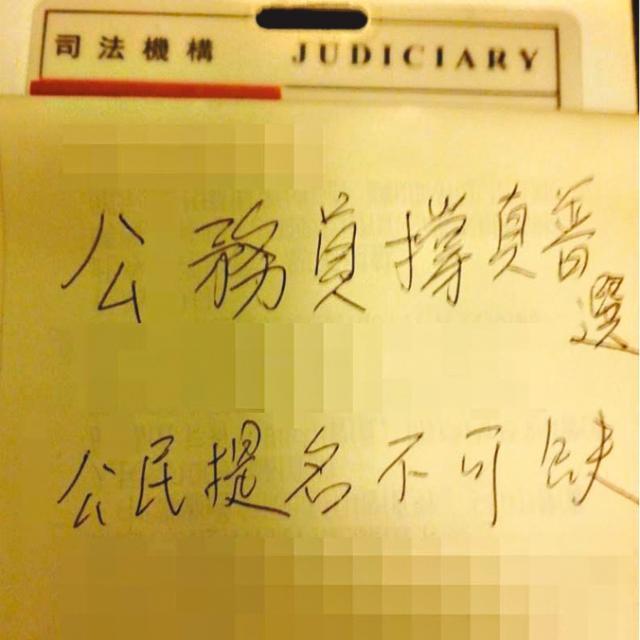 司法機構 JUDICIARY
公務員撐真普選
公民提名不可缺